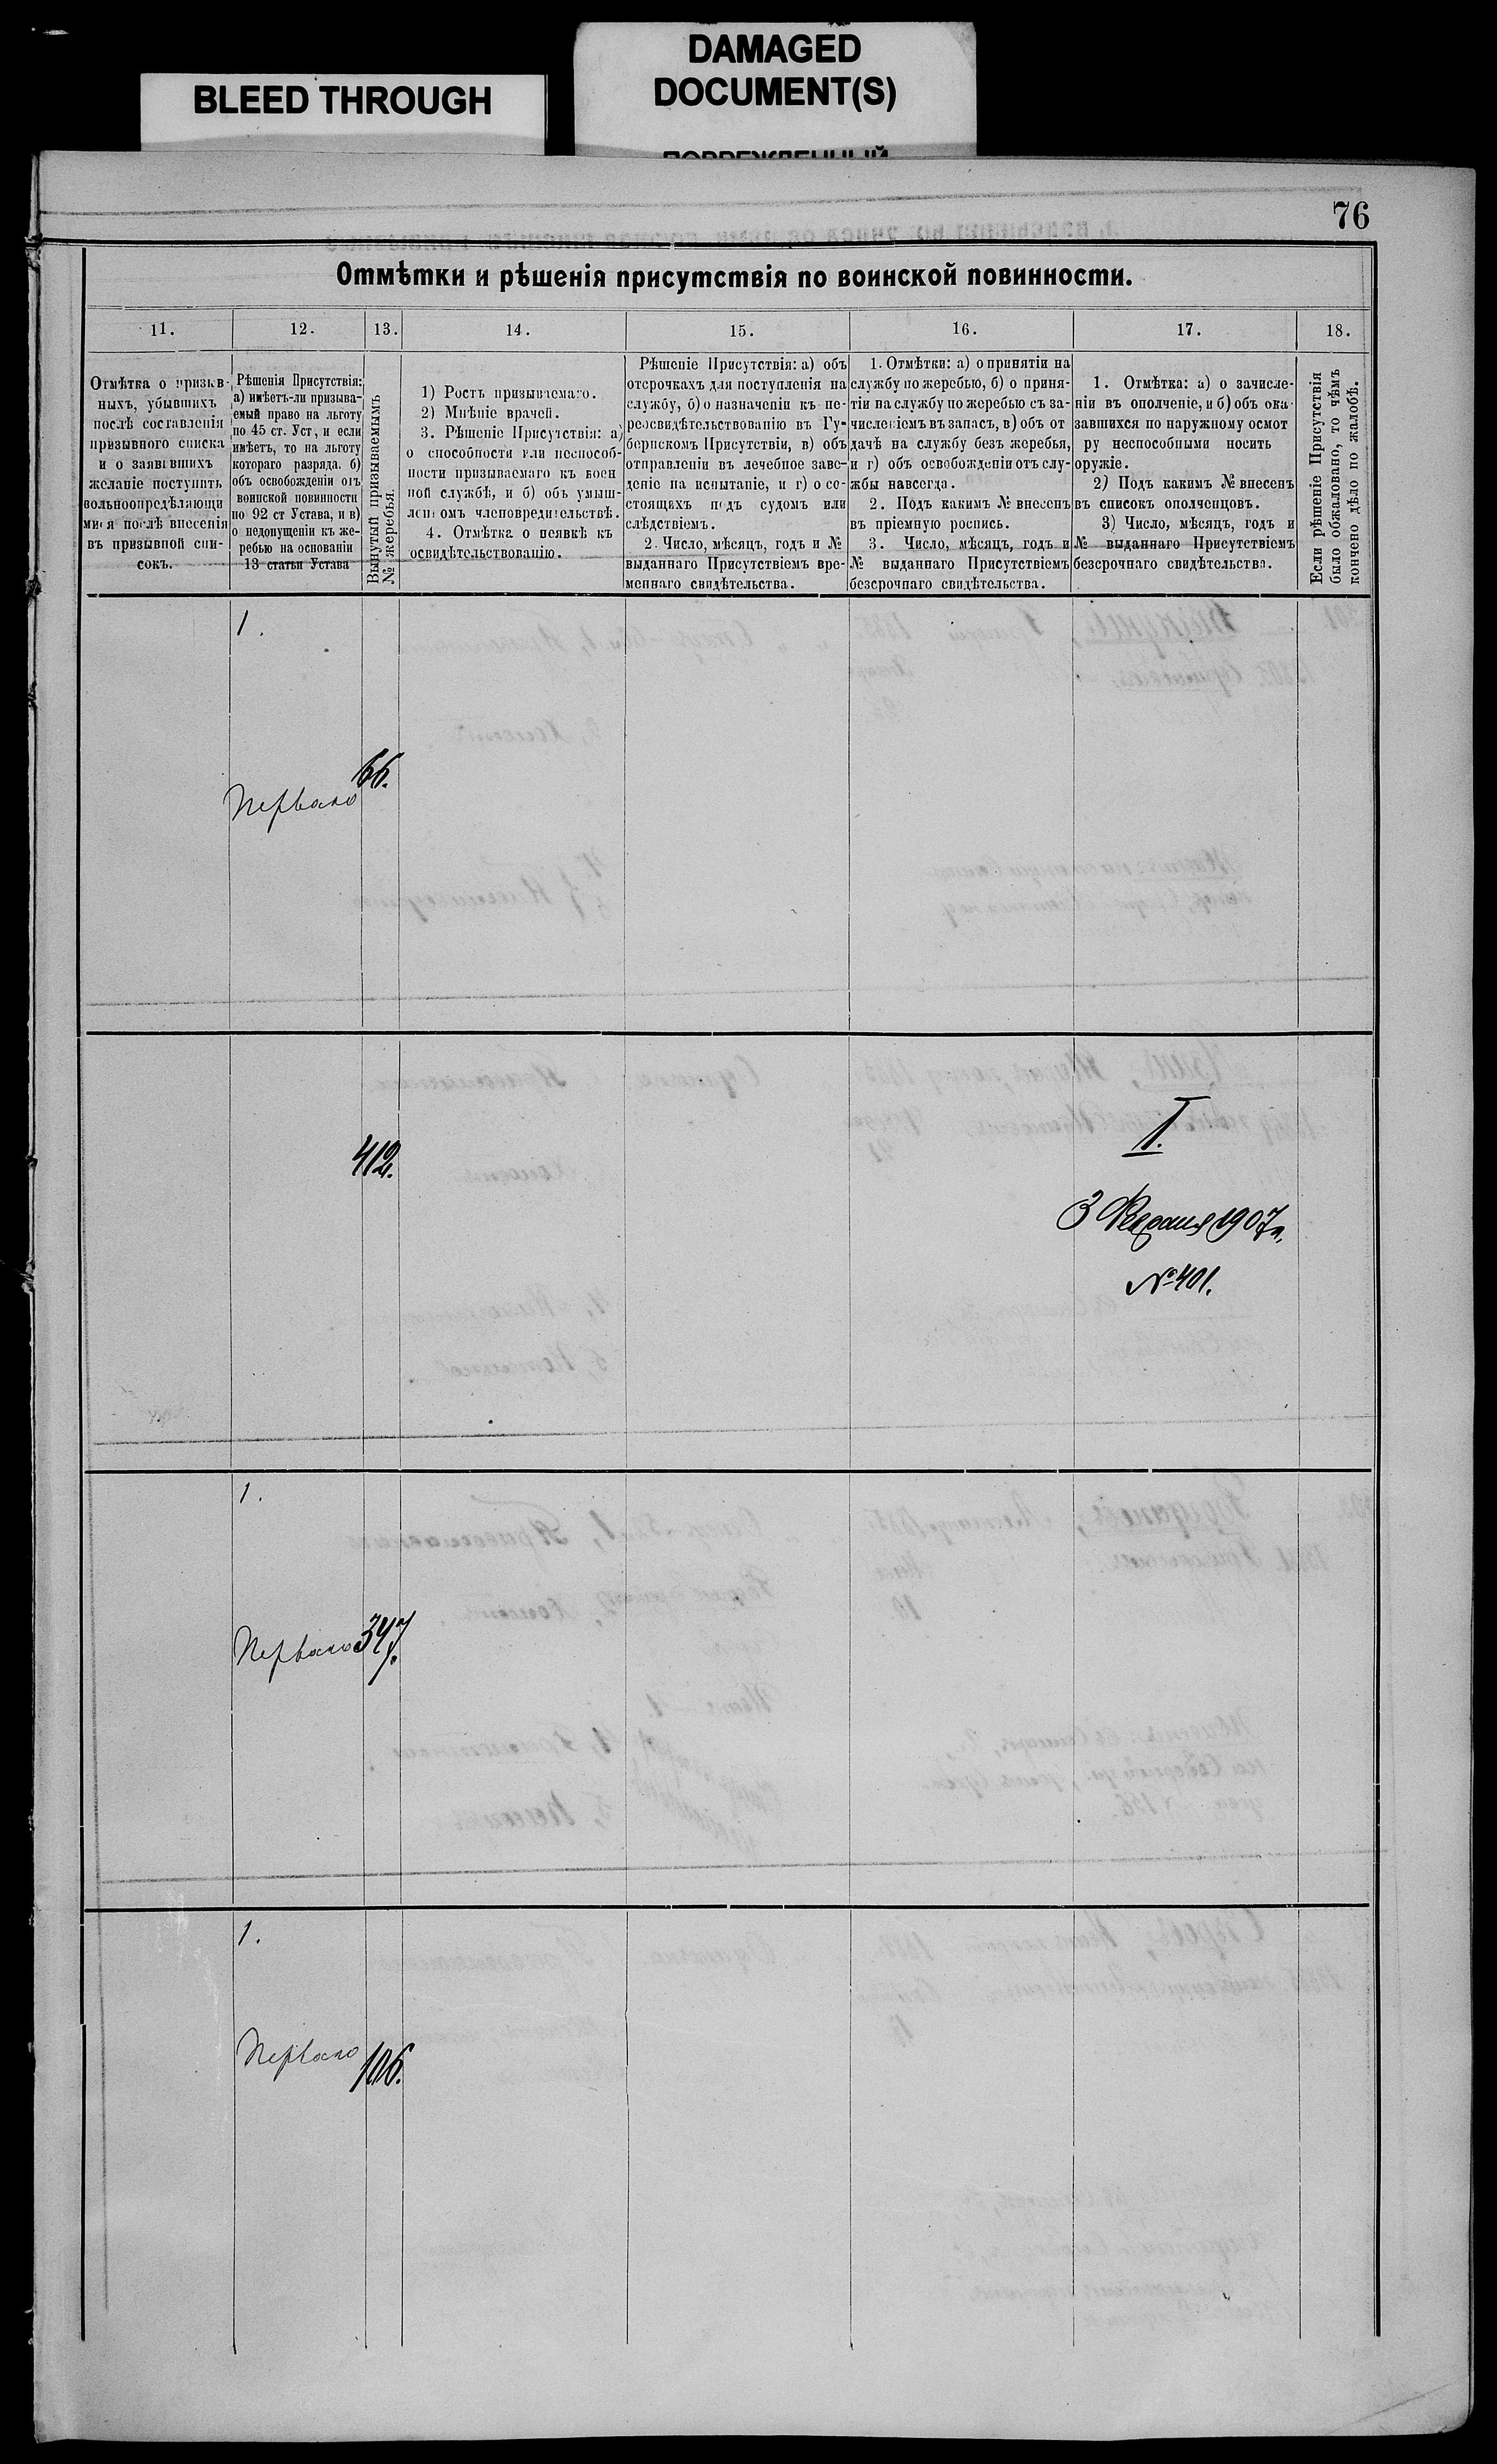 BLEED THROUGH
DAMAGED
DOCUMENT(S)
76
Отмѣтки и рѣшенія присутствія по воинской повинности.
11.
12.
13.
14.
15.
16.
17.
18.
Отмѣтка о призыв-
ныхъ, убывшихъ
послѣ составленія
призывного списка
и о заявившихъ
желаніе поступить
вольноопредѣляющи
мися послѣ внесенія
въ призывной спи-
сокъ.
Рѣшенія Присутствія:
а) имѣетъ-ли призыва-
емый право на льготу
по 45 ст. Уст, и если
имѣетъ, то на льготу
котораго разряда. б)
объ освобожденіи отъ
воинской повинности
по 92 ст Устава, и в)
о недопущеніи къ же-
ребью на основаніи
13 статьи Устава
Вынутый призываемымъ
№ жеребья.
1) Ростъ призываемаго.
2) Мнѣніе врачей.
3. Рѣшеніе Присутствія: а)
о способности или неспособ-
ности призываемаго къ воен
ной службѣ, и б) объ умыш-
леномъ членовредительствѣ.
4. Отмѣтка о неявкѣ къ
освидѣтельствованію.
Рѣшеніе Присутствія: а) объ
отсрочкахъ для поступленія на
службу, б) о назначеніи къ пе-
реосвидѣтельствованію въ Гу-
бернскомъ Присутствіи, в) объ
отправленіи въ лечебное заве-
деніе на испытаніе, и г) о со-
стоящехъ подъ судомъ или
слѣдствіемъ.
2. Число, мѣсяцъ, годъ и №
выданнаго Присутствіемъ вре-
меннаго свидѣтельства.
1. Отмѣтки: а) о принятіи на
службу по жеребью, б) о приня-
тіи на службу по жеребью съ за-
численіемъ въ запасъ, в) объ от
дачѣ на службу безъ жеребья,
и г) объ освобожденіи отъ слу-
жбы навсегда.
2. Подъ какимъ № внесенъ
въ пріемную роспись.
3. Число, мѣсяцъ, годъ и
№ выданнаго Присутствіемъ
безсрочнаго свидѣтельства.
1. Отмѣтка: а) о зачисле-
ніи въ ополченіе, и б) объ ока-
завшихся по наружному осмот
ру неспособными носить
оружіе.
2) Подъ какимъ № внесенъ
въ списокъ ополченцовъ.
3) Число, мѣсяцъ, годъ и
№ выданнаго Присутствіемъ
безсрочнаго свидѣтельства.
Если рѣшеніе Присутствія
было обжаловано, то чѣмъ
кончено дѣло по жалобѣ.
1.
Перваго
66.
412.
I.
3 Февраля 1907 г.
№ 401.
1.
Перваго
347.
1.
Перваго
106.